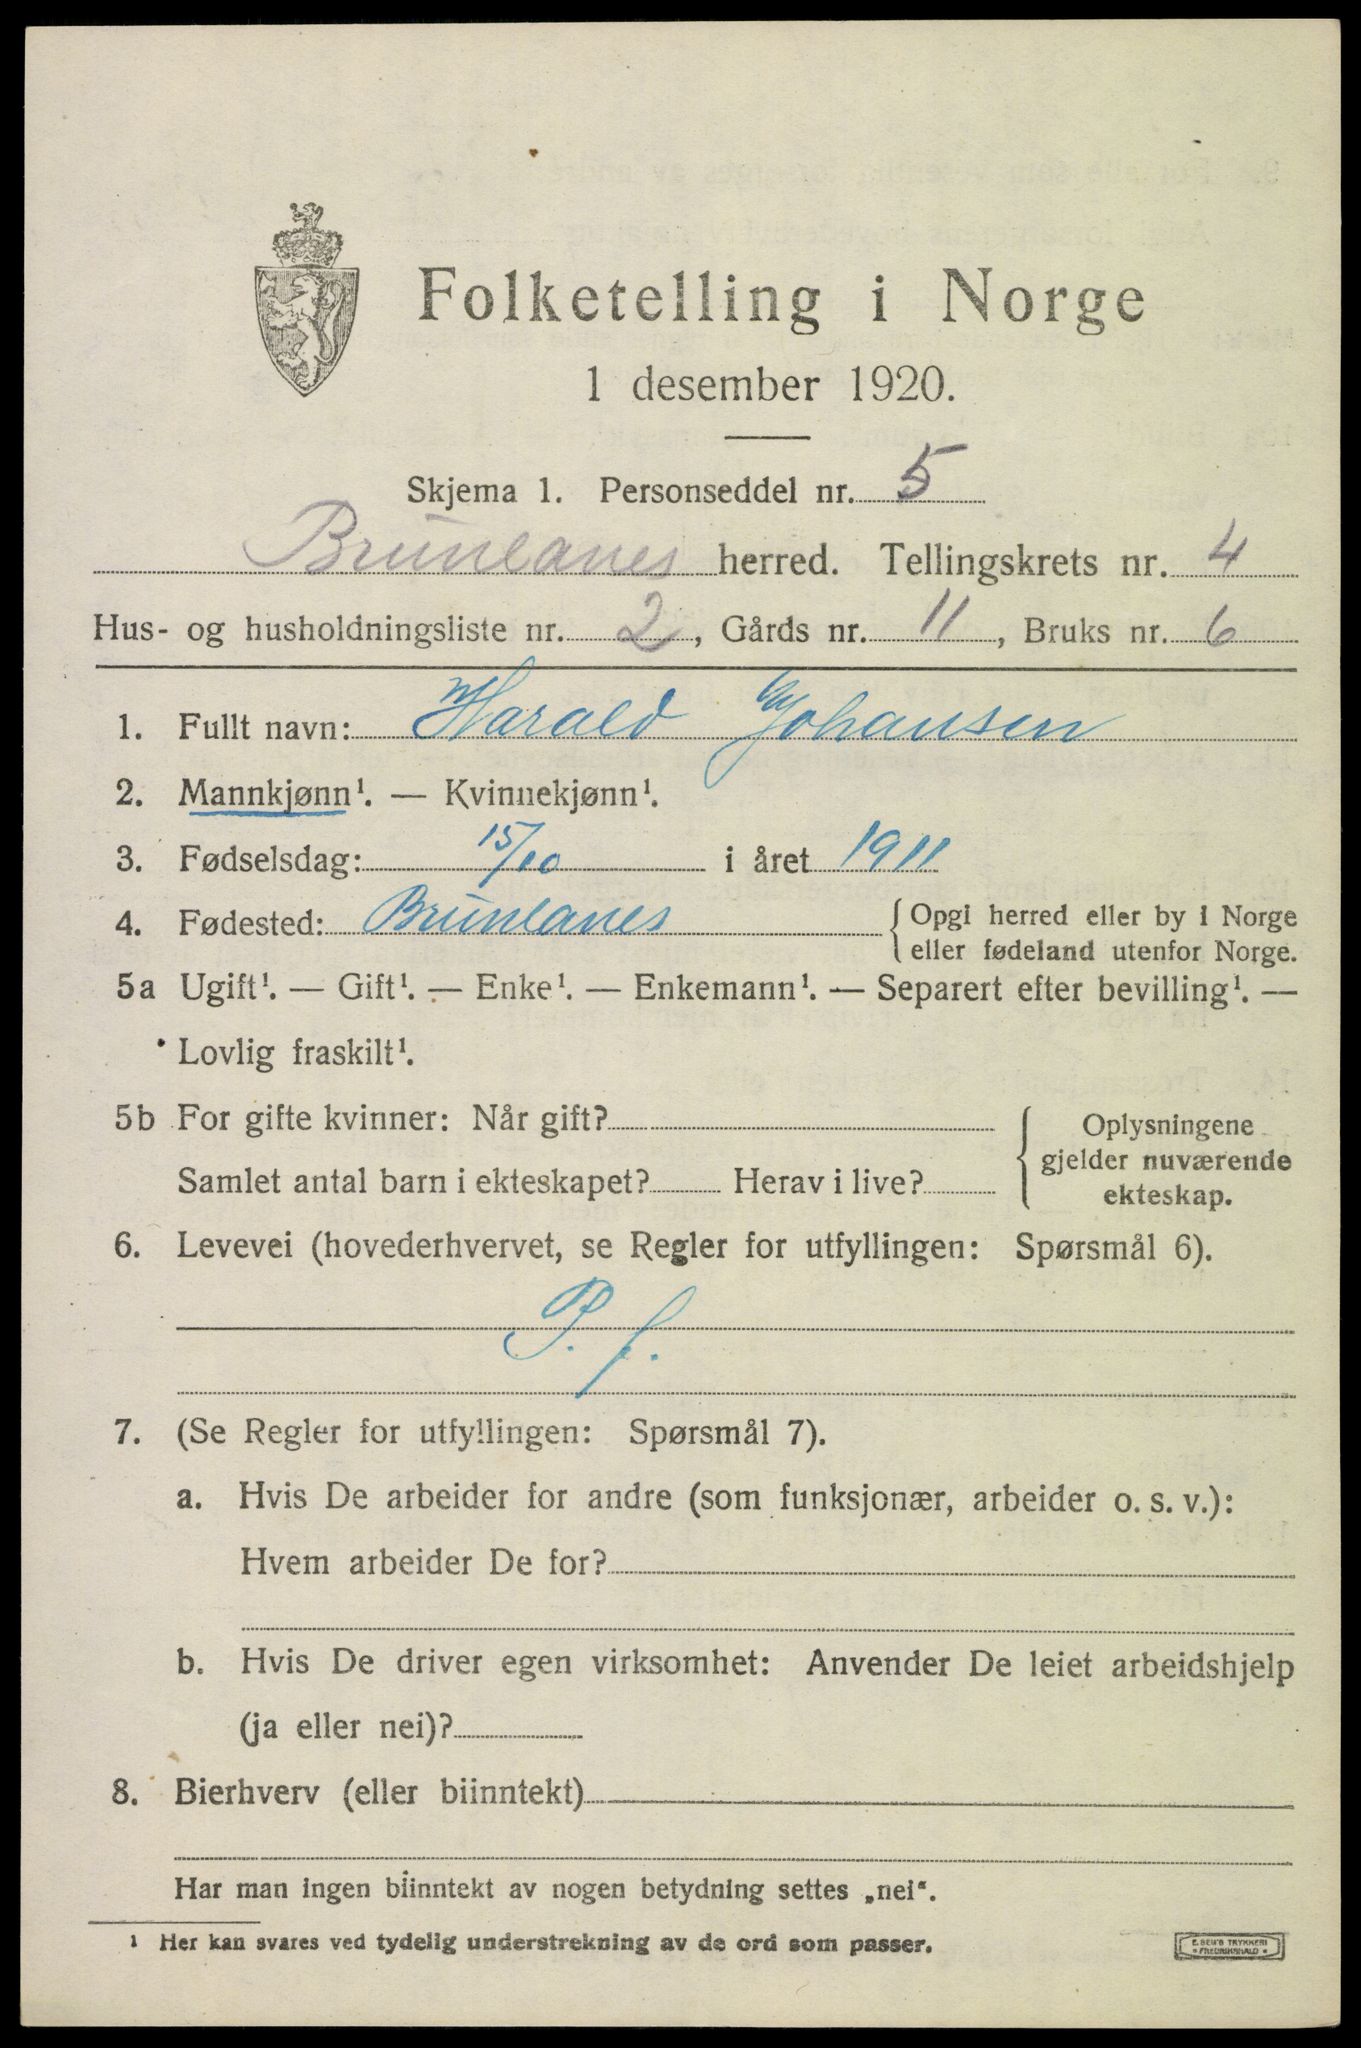 Folketelling i Norge
1 desember 1920.
Skjema 1. Personseddel nr. 5
Brunlanes herred. Tellingskrets nr. 4
Hus- og husholdningsliste nr. 2, Gårds nr. 11, Bruks nr. 6
1. Fullt navn: Harald Johansen
2. Mannkjønn¹. — Kvinnekjønn¹.
3. Fødselsdag: 15/10 i året 1911
4. Fødested: Brunlanes { Opgi herred eller by i Norge
eller fødeland utenfor Norge.
5a Ugift¹. — Gift¹. — Enke¹. — Enkemann¹. — Separert efter bevilling¹. —
Lovlig fraskilt¹.
5b For gifte kvinner: Når gift?
Samlet antal barn i ekteskapet? Herav i live?
Oplysningene
gjelder nuværende
ekteskap.
6. Levevei (hovederhvervet, se Regler for utfyllingen: Spørsmål 6).
P. f.
7. (Se Regler for utfyllingen: Spørsmål 7).
a. Hvis De arbeider for andre (som funksjonær, arbeider o. s. v.):
Hvem arbeider De for?
b. Hvis De driver egen virksomhet: Anvender De leiet arbeidshjelp
(ja eller nei)?
8. Bierhverv (eller biinntekt)
Har man ingen biinntekt av nogen betydning settes „nei“.
¹ Her kan svares ved tydelig understrekning av de ord som passer.
E. SEM'S TRYKKERI
FREDRIKSHALD